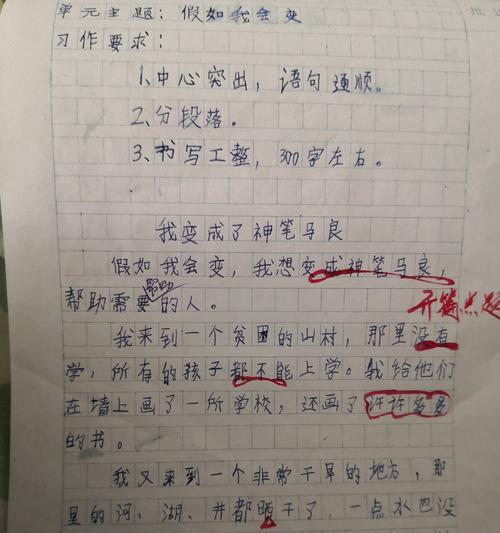 单元主题：假如我会变
习作要求：
1、中心突出，语句通顺。
2、分段落。
3、书写工整，300字左右。
我变成了神笔马良
假如我会变，我想变成神笔马良，
帮助需要帮助的人。
开篇点题
我来到一个贫困的山村，那里没有
学，所有的孩子都不能上学。我给他们
在墙上画了一所学校，还画了许许多多
的书。
我又来到一个非常干旱的地方，那
里的河、湖、井都晒干了，一点水也没